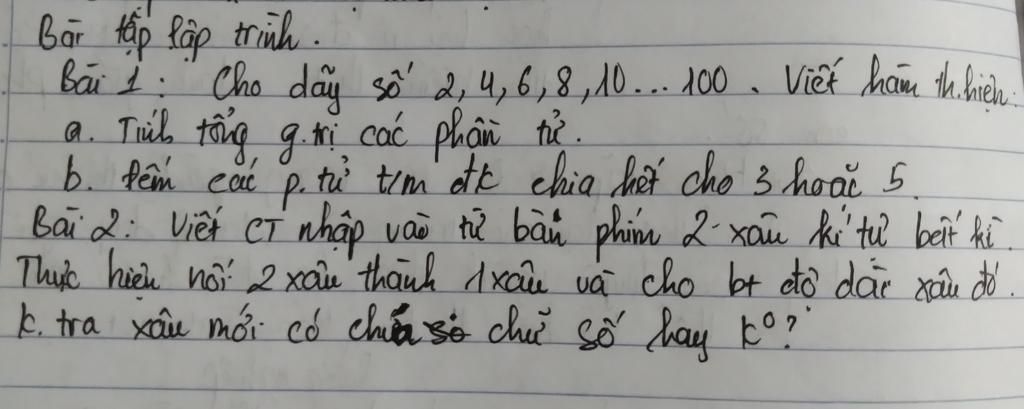 Bài tập lập trình.
Bài 1: Cho dãy số 2, 4, 6, 8, 10... 100. Viết hàm th.hiện:
a. Tính tổng g.trị các phần tử.
b. Đếm các p.tử t/m đk chia hết cho 3 hoặc 5.
Bài 2: Viết CT nhập vào từ bàn phím 2 xâu kí tự bất kì.
Thực hiện nối 2 xâu thành 1 xâu và cho bt độ dài xâu đó.
k. tra xâu mới có chứa số chữ số hay k⁰?